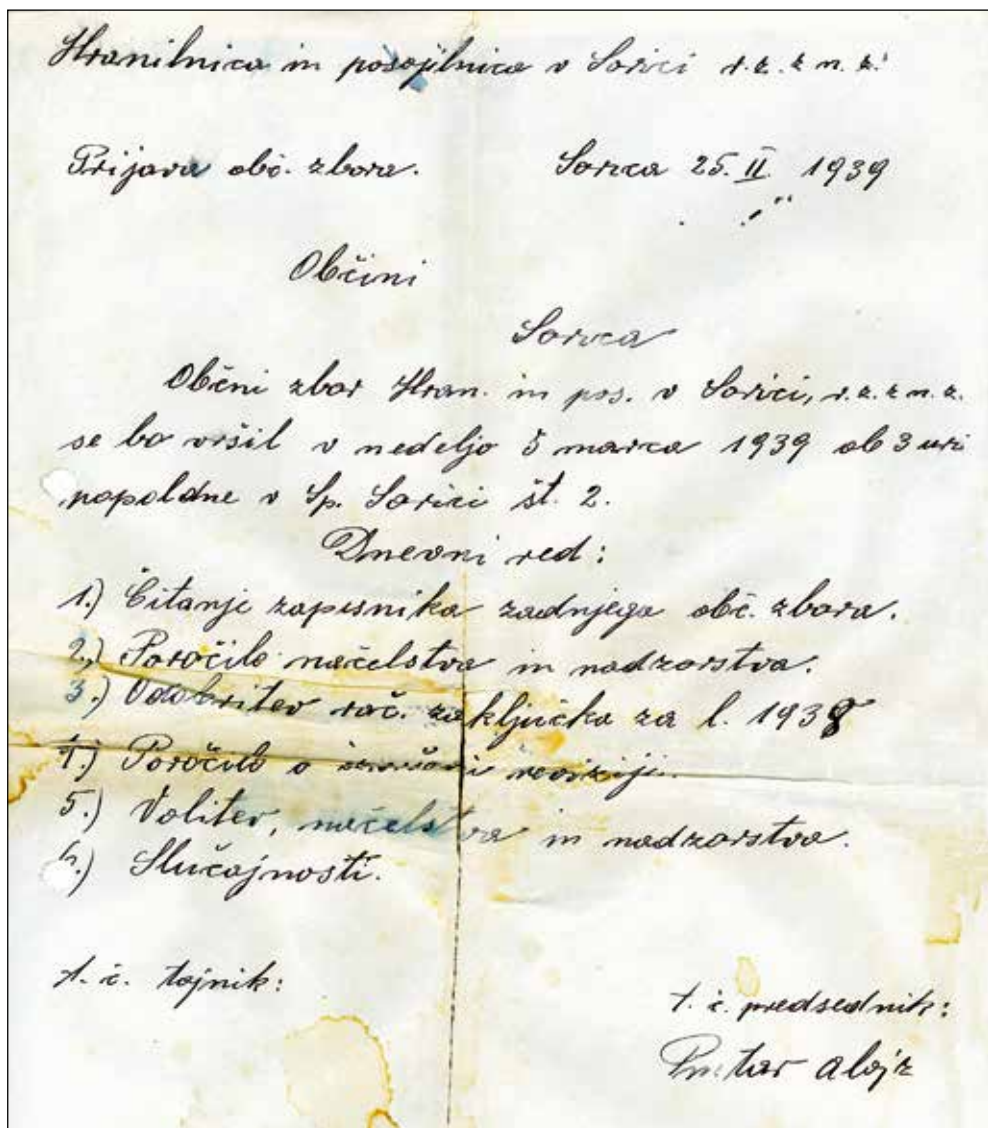 Hranilnica in posojilnica v Sorici r. z. z n. z.
Prijava obč. zbora. Sorica 25. II. 1939
Občini
Sorica
Občni zbor Hran. in pos. v Sorici, r. z. z n. z.
se bo vršil v nedeljo 5 marca 1939 ob 3 uri
popoldne v Sp. Sorici št. 2.
Dnevni red:
1.) Čitanje zapisnika zadnjega obč. zbora.
2.) Poročilo načelstva in nadzorstva.
3.) Odobritev rač. zaključka za l. 1938
4.) Poročilo o izvršeni reviziji.
5.) Volitev, načelstva in nadzorstva.
6.) Slučajnosti.
t. č. tajnik:
t. č. predsednik:
Alojz